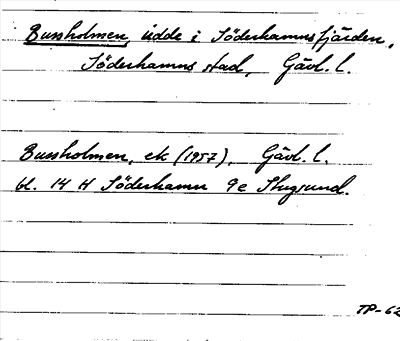 Bussholmen, udde i Söderhamnsfjärden,
Söderhamns stad, Gävl. l.
Bussholmen, ek (1957), Gävl. l.
bl. 14 H Söderhamn 9e Stugsund.
TP-62